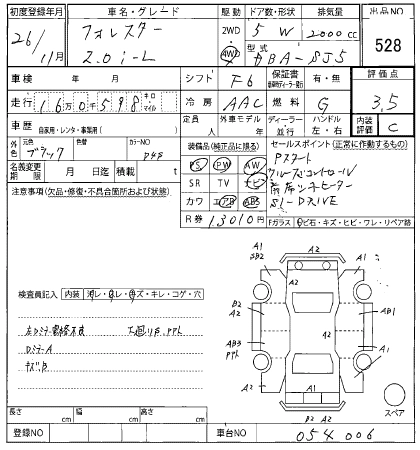 初度登録年月 車名・グレード 駆動 ドア数・形状 排気量 出品NO
26/11月 フォレスター 2.0i-L 2WD 4WD 5 W 2000cc 528
型式 DBA-SJ5
車検 年 月 シフト F6 保証書 有・無 評価点
走行 16万0千598 キロ マイル 冷房 AAC 燃料 G 3,5
車歴 自家用・レンタ・事業用( ) 定員 人 外車モデル年 ディーラー 並行 ハンドル 左・右 内装評価 C
外色 元色 ブラック 色替 カラーNO D4S
装備品(純正品に限る) セールスポイント(正常に作動するもの)
名義変更期限 月 日迄 積載 t
PS PW AW
SR TV ナビ
カワ エアB ABS
R券 13010円
Pスタート
クルーズコントロール
前席シートヒーター
SI-DRIVE
Fガラス(トビ石・キズ・ヒビ・ワレ・リペア跡
注意事項(欠品・修復・不具合箇所および状態)
検査員記入 内装 汚レ・スレ・キズ・キレ・コゲ・穴
左ドミラー格納不良 工具リPあ、PPル
DミラーA
キズB
A1
S2
A2
A2
A1
A2
B2
A2
AB1
AB3
PPル
A2
A1
A2
A1
A1
B2 A2
スペア
長さ cm 幅 cm 高さ cm
登録NO 車台NO 054006